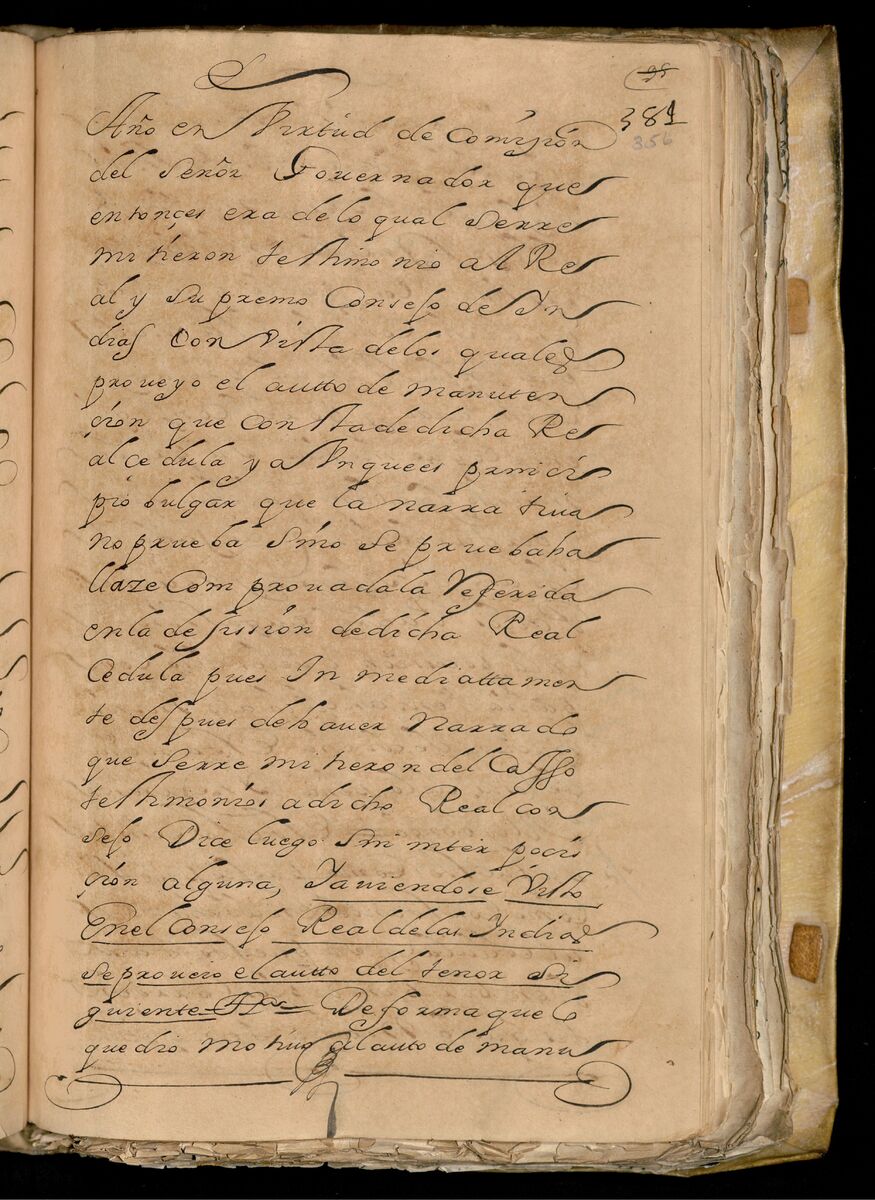 381
356
Año en Virtud de Comission
del Señor Gouernador que
entonçes era de lo qual Serre
mitieron testimonio al Re
al y Supremo Consejo de Yn
dias Con Vista de los quales
proueyo el autto de manuten
çion que consta de dicha Re
al cedula y a Vnque es princi
pio bulgar que la narratiua
no prueba Sino Se prueba ha
llaze Comprouada la Referida
en la desision de dicha Real
Cedula pues Inmediattamen
te despues de hauer Narrado
que Serremitieron del Casso
testimonios a dicho Real con
sejo Dice luego Sin interpoçi
çion alguna, Yauiendose Visto
En el Consejo Real de las Indias
se proueio el autto del tenor Si
guiente = De forma que lo
que dio motiuo al auto de manu